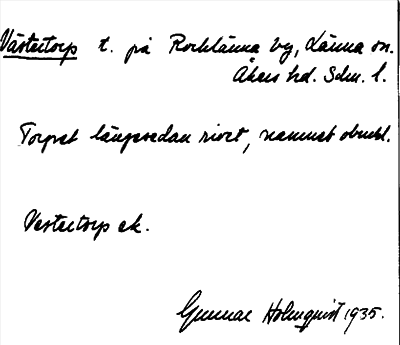 Västertorp t. på Rocklänna by, Länna sn.
Åkers hd. Sdm. l.
Torpet längesedan rivet, namnet obrukl.
Vestertorp ek.
Gunnar Holmquist 1935.